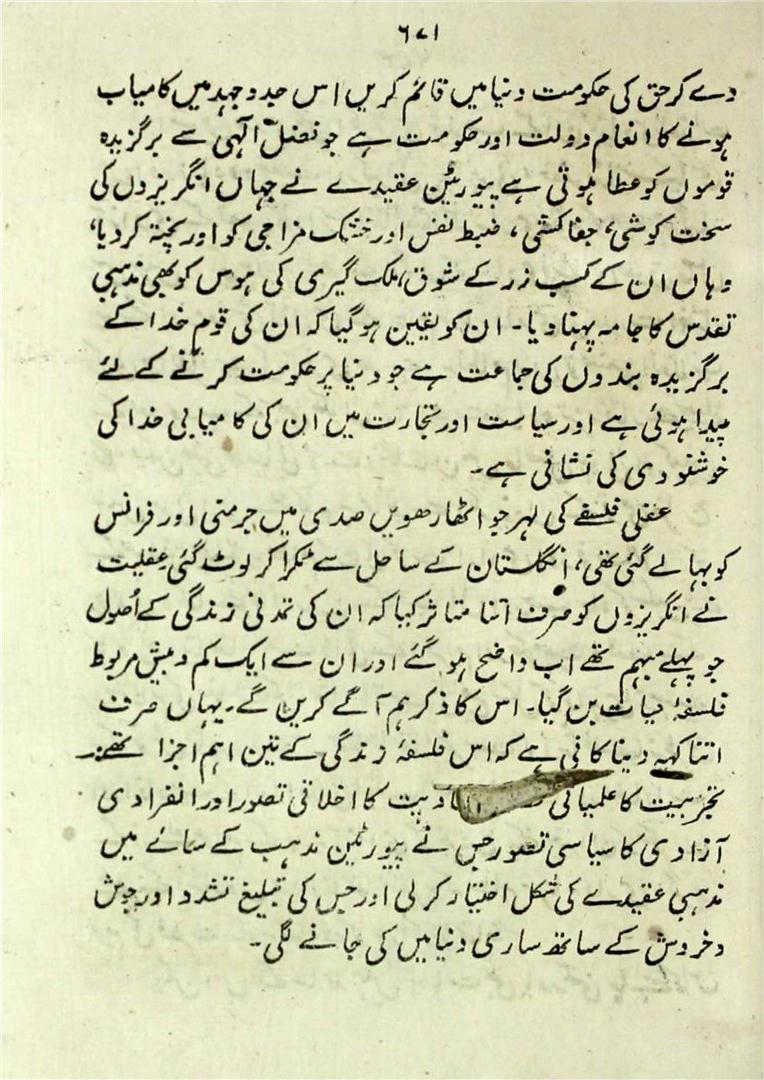 ۶۷۱
دے کر حق کی حکومت دنیا میں قائم کریں اس جدوجہد میں کامیاب
ہونے کا انعام دولت اور حکومت ہے جو فضل آلہی سے برگزیدہ
قوموں کو عطا ہوتی ہے پیوریٹن عقیدے نے جہاں انگریزوں کی
سخت کوشی، جفا کشی، ضبط نفس اور خشک مزاجی کو اور پختہ کردیا،
وہاں ان کے کسب زر کے شوق، ملک گیری کی ہوس کو بھی مذہبی
تقدس کا جامہ پہنا دیا۔ ان کو یقین ہو گیا کہ ان کی قوم خدا کے
برگزیدہ بندوں کی جماعت ہے جو دنیا پر حکومت کرنے کے لئے
پیدا ہوئی ہے اور سیاست اور تجارت میں ان کی کامیابی خدا کی
خوشنودی کی نشانی ہے۔
عقلی فلسفے کی لہر جو اٹھارھویں صدی میں جرمنی اور فرانس
کو بہا لے گئی تھی، انگلستان کے ساحل سے ٹکرا کر لوٹ گئی عقلیت
نے انگریزوں کو صرف اتنا متاثر کیا کہ ان کی تمدنی زندگی کے اُصول
جو پہلے مبہم تھے اب واضح ہو گئے اور ان سے ایک کم و بیش مربوط
فلسفۂ حیات بن گیا۔ اس کا ذکر ہم آگے کریں گے۔ یہاں صرف
اتنا کہہ دینا کافی ہے کہ اس فلسفۂ زندگی کے تین اہم اجزا تھے:۔
تجربیت کا علمیاتی کا اخلاقی تصور اور انفرادی
آزادی کا سیاسی تصور جس نے پیوریٹین مذہب کے سائے میں
مذہبی عقیدے کی شکل اختیار کر لی اور جس کی تبلیغ تشدد اور جوش
و خروش کے ساتھ ساری دنیا میں کی جانے لگی۔